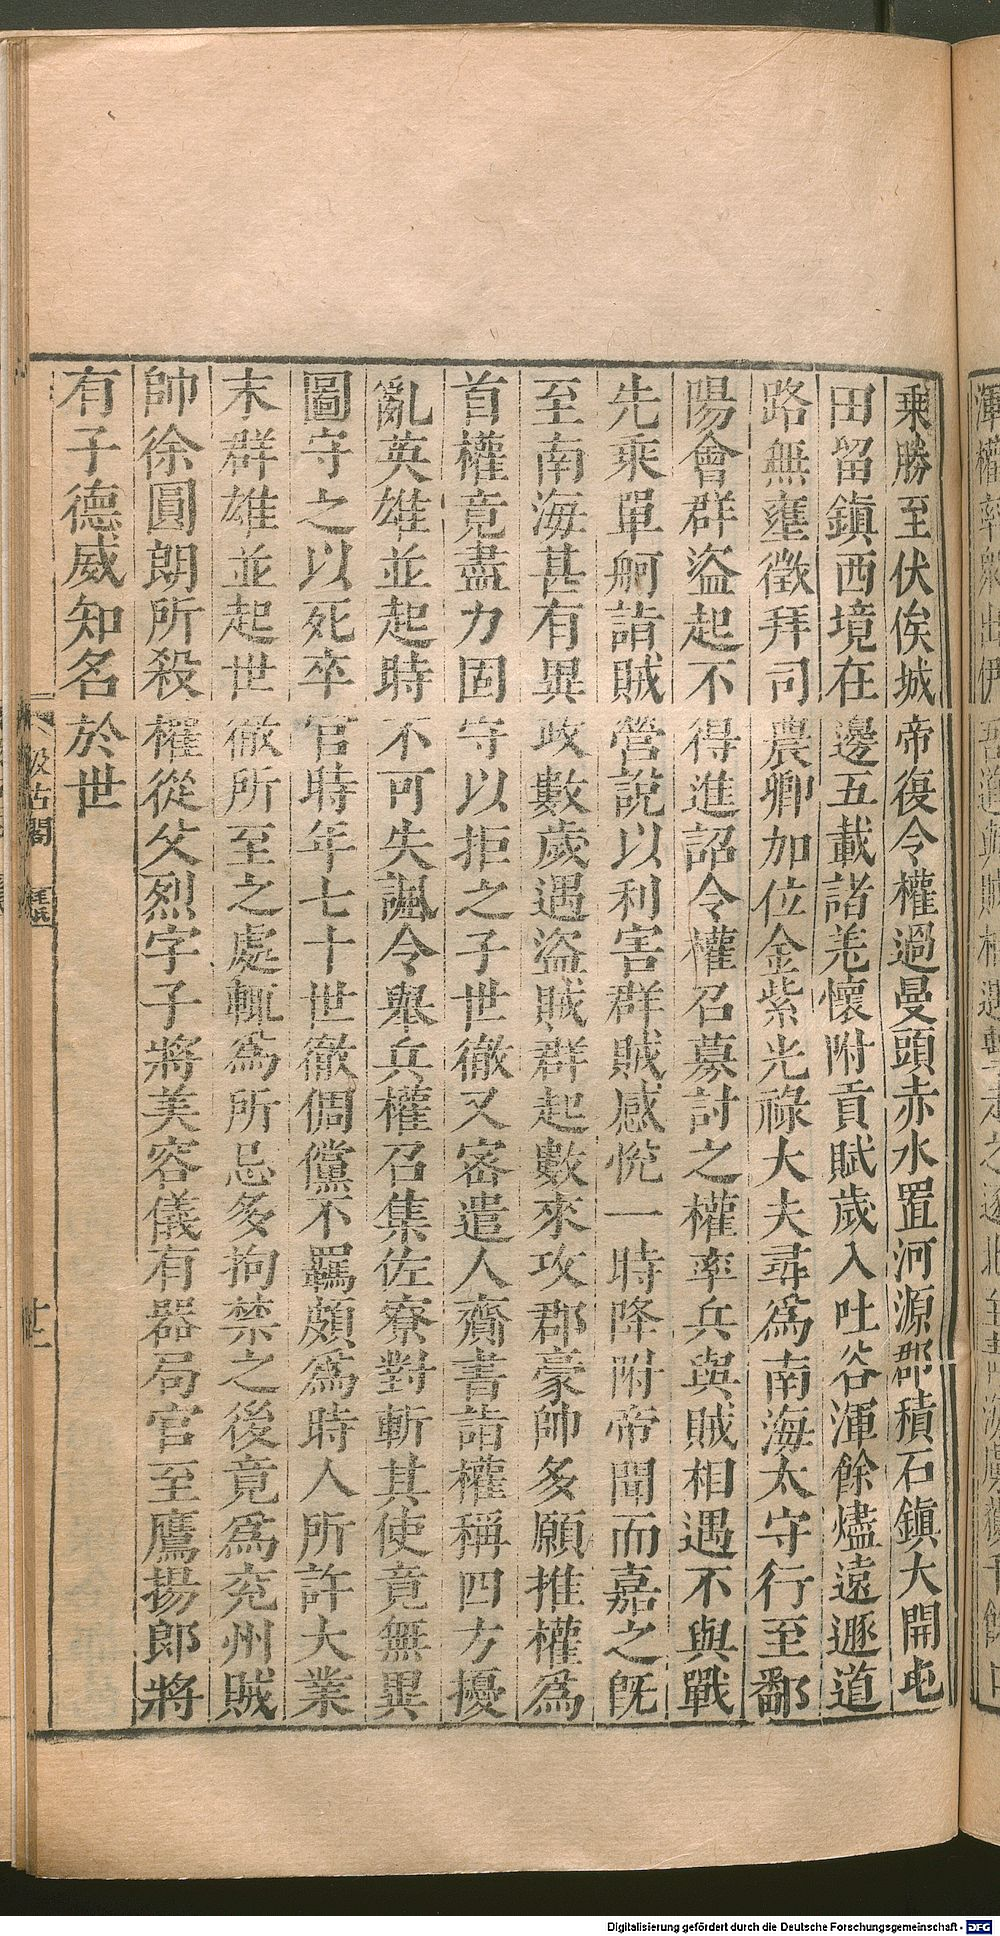 乘勝至伏俟城帝復令權過曼頭赤水置河源郡積石鎮大開屯
田留鎮西境在邊五載諸羌懷附貢賦歲入吐谷渾餘燼遠遯道
路無壅徵拜司農卿加位金紫光祿大夫尋爲南海太守行至鄱
陽會群盜起不得進詔令權召募討之權率兵與賊相遇不與戰
先乘單舸詣賊營說以利害群賊感悅一時降附帝聞而嘉之旣
至南海甚有異政數歲遇盜賊群起數來攻郡豪帥多願推權爲
首權竟盡力固守以拒之子世徹又密遣人齎書詣權稱四方擾
亂英雄並起時不可失諷令舉兵權召集佐寮對斬其使竟無異
圖守之以死卒官時年七十世徹倜儻不羈頗爲時人所許大業
末群雄並起世徹所至之處輒爲所忌多拘禁之後竟爲兖州賊
帥徐圓朗所殺權從父烈字子將美容儀有器局官至鷹揚郎將
有子德威知名於世
汲古閣
Digitalisierung gefördert durch die Deutsche Forschungsgemeinschaft - DFG